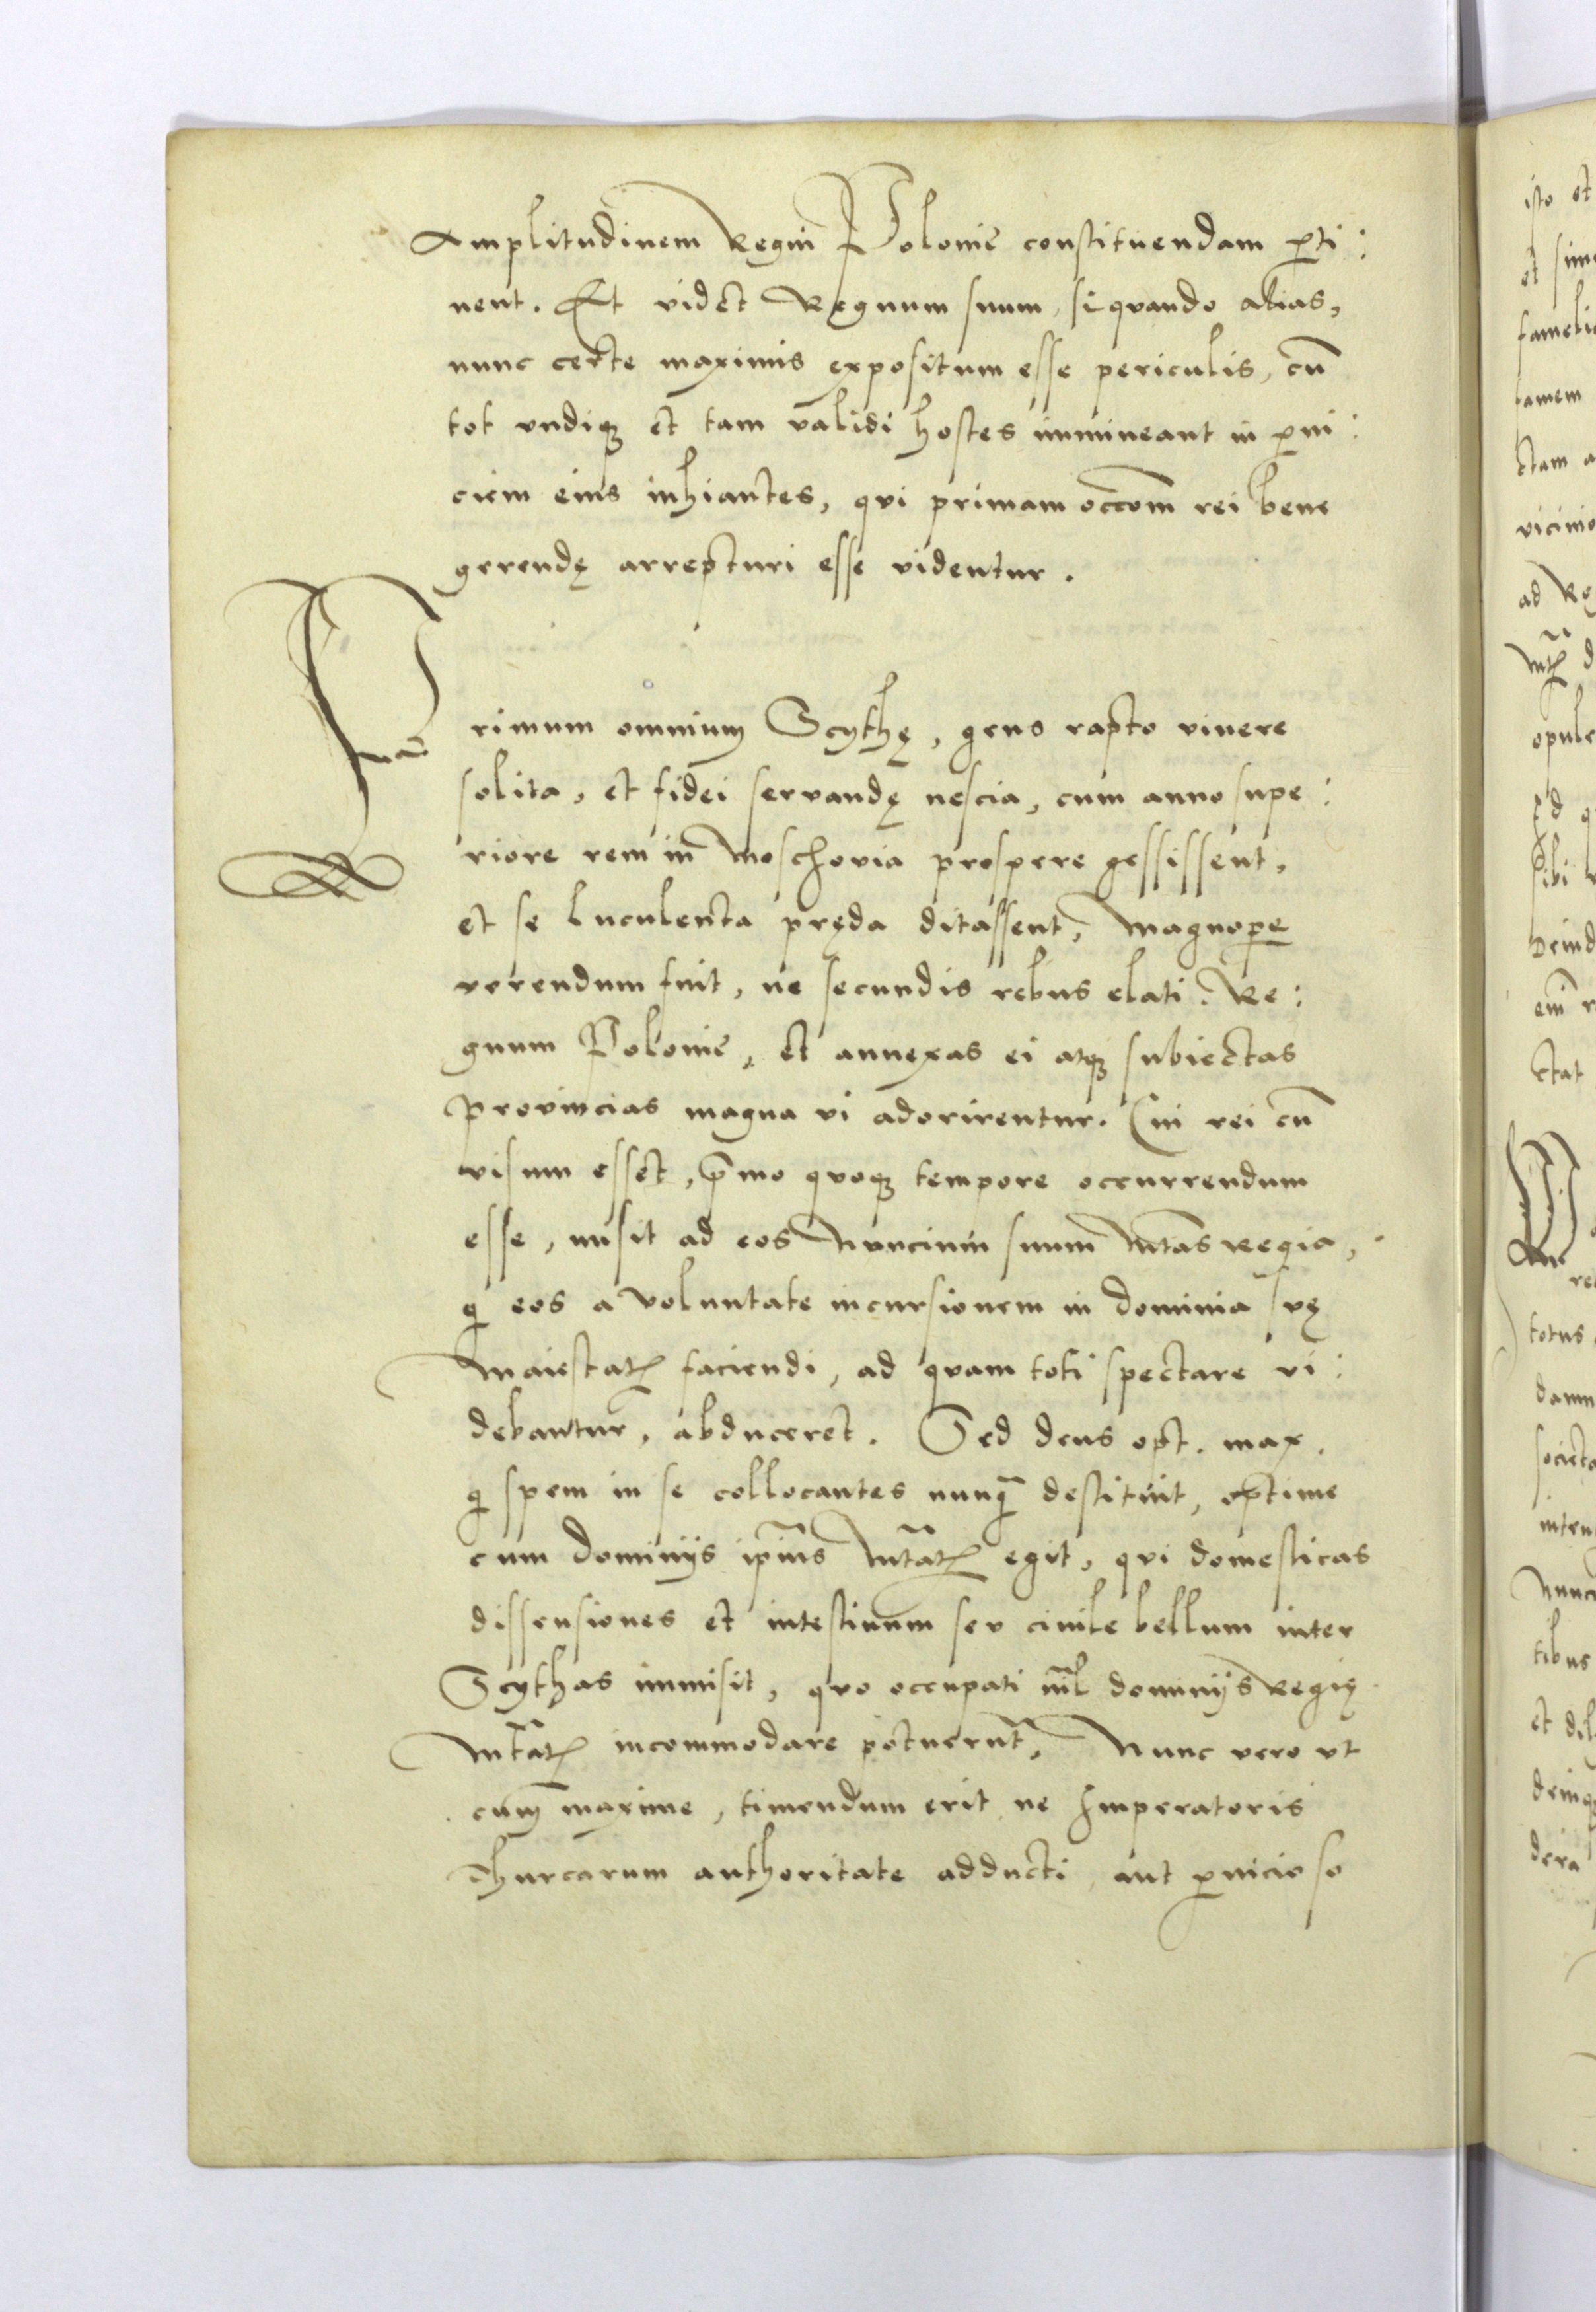 Amplitudinem Regni Polonię constituendam p̱ti:
nent. Et videt Regnum suum, si quando alias,
nunc certe maximis expositum esse periculis, cū
tot vndiq; et tam validi hostes immineant in p̱ni:
ciem eius inhiantes, qui primam occōm rei bene
gerendę arrepturi esse videntur.
Nā
Primum omnium Scythę, gens rapto viuere
solita, et fidei servandę nescia, cum anno supe:
riore rem in Moschovia prospere gessissent,
et se luculenta pręda ditassent, magnop̱e
verendum fuit, ne secundis rebus elati Re:
gnum Polonię, et annexas ei atq; subiectas
provincias magna vi adorirentur. Cui rei cū
visum esset, p̄mo quoq; tempore occurrendum
esse, misit ad eos Nuncium suum Mtās Regia,
q eos a voluntate incursionem in dominia suę
Maiestatꝭ faciendi, ad quam toti spectare vi:
debantur, abduceret. Sed deus opt. max.
q spem in se collocantes nunq̄ destituit, optime
cum dominijs ip̄ius Mtātꝭ egit, qui domesticas
dissensiones et intestinum seu ciuile bellum inter
Scythas immisit, quo occupati nīl dominijs Regię
Mtātꝭ incommodare potuerūt, Nunc vero vt
cum maxime, timendum erit ne Imperatoris
Thurcarum authoritate adducti, aut p̱nicioso